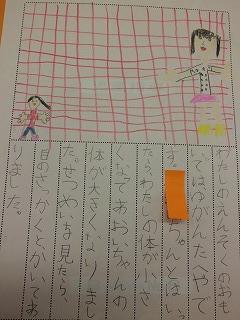 わたしのえんそくのおも
いではゆがんだへやで
す。ちゃんとはいっ
たら、わたしの体が小さ
くなってあおいちゃんの
体が大きくなりまし
た。せつめいを見たら、
目のさっかくと、かいてあ
りました。